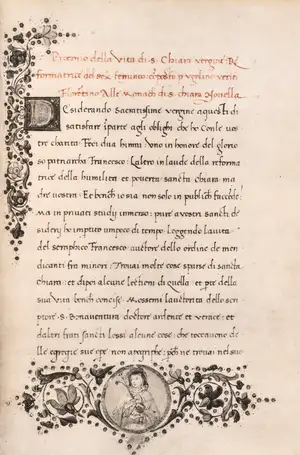 Proemio della Vita di .S. Chiara vergine Re
formatrice del sex femineo: cōposto p Ugolino verini
Fiorentino Alle Monach di .s. chiara Novella
Desiderando Sacratissime vergine a questi di
satisfare ī parte agli oblighi che ho con le vos
tre charita. Feci dua himni Uno in honore del glorio
so patriarcha Francesco. Laltro in laude della reforma
trice della humilita et poverta sancta chiara ma
dre vostra. Et bench io sia non solo in publich faccēde:
Ma in privati studii inmerso: pure a vostri sancti de
siderii ho impiuto um poco di tempo. Leggendo la vita
del seraphico Francesco auctore dello ordine de men
dicanti fra minori: Trovai molte cose sparse di sancta
chiara: et dipoi alcune lectioni di quella et pte della
sua Vita bench concise. Mossemi lauctorita dello scri
ptore .s. Bonaventura doctore ardente et verace: et
da altri frati sancti lessi alcune cose: che toccavono de
lle egregie sue ope non apocriphe: pch ne trovai nel suo